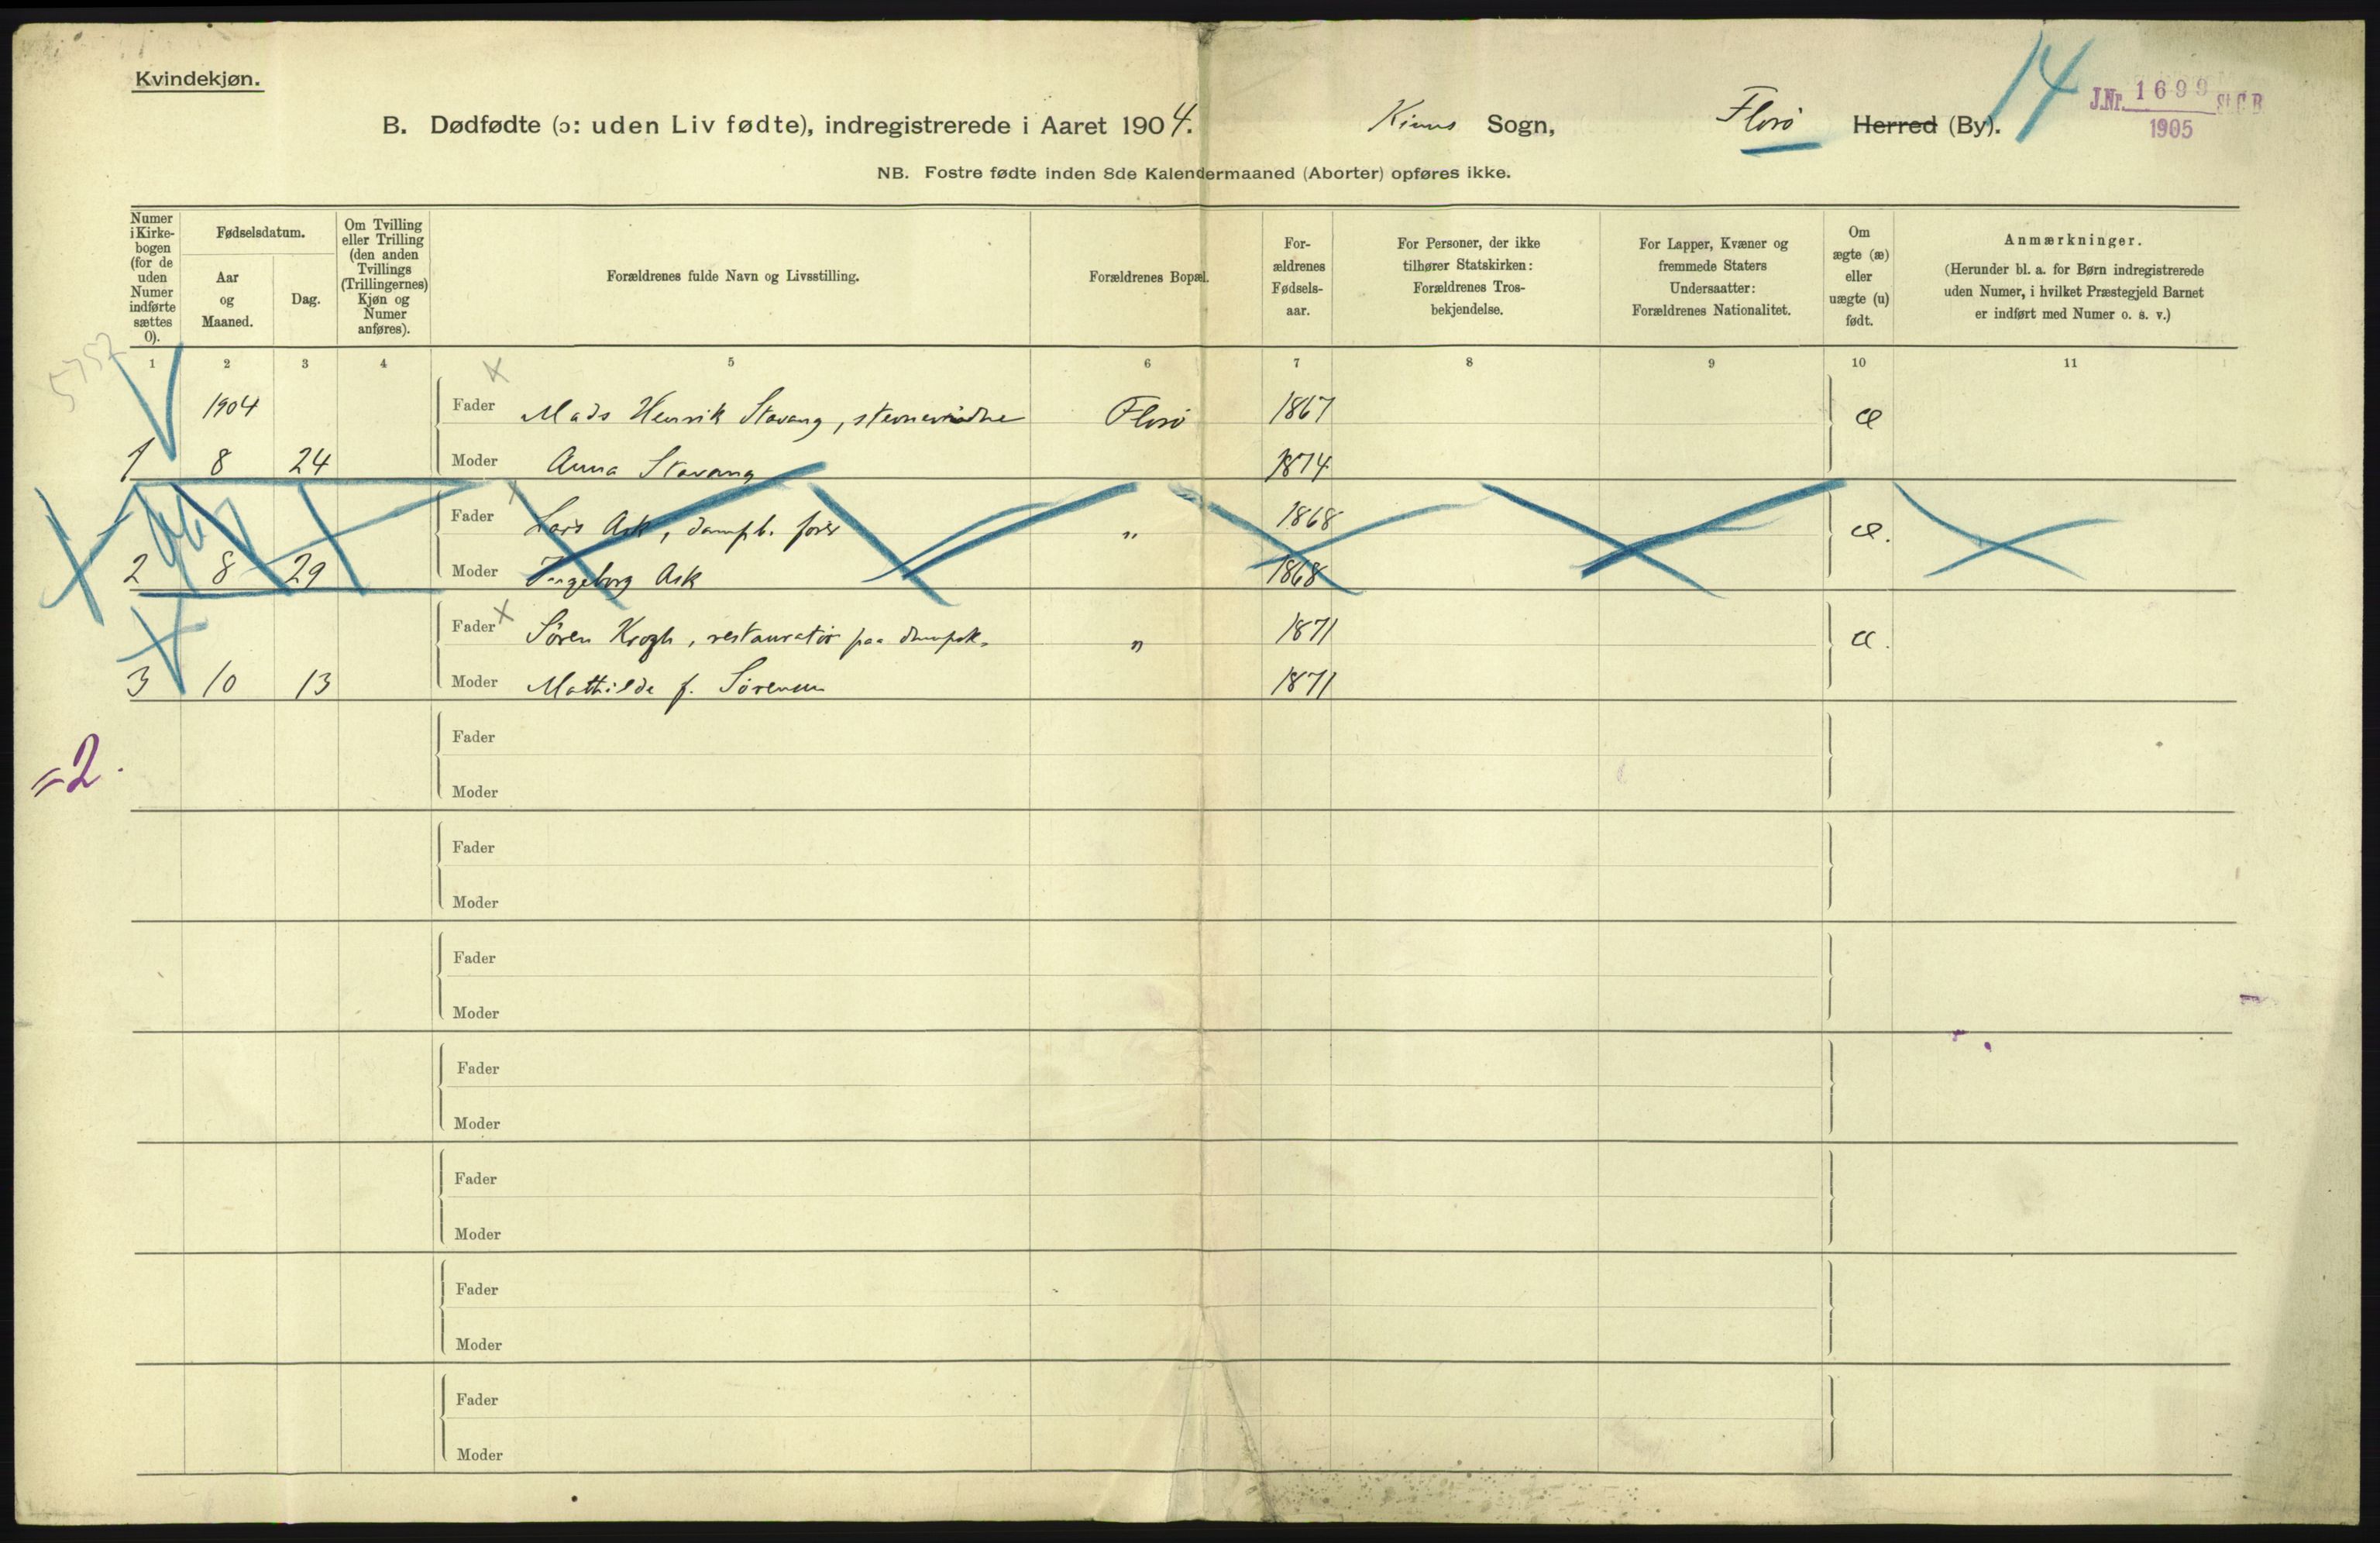 Kvindekjøn.
14
J.Nr. 1699 St.C.B
1905
B. Dødfødte (ɔ: uden Liv fødte), indregistrerede i Aaret 1904. Kinns Sogn, Florø Herred (By).
NB. Fostre fødte inden 8de Kalendermaaned (Aborter) opføres ikke.
Numer i Kirkebogen (for de uden Numer indførte sættes 0).
Fødselsdatum.
Aar og Maaned.
Dag.
Om Tvilling eller Trilling (den anden Tvillings (Trillingernes) Kjøn og Numer anføres).
Forældrenes fulde Navn og Livsstilling.
Forældrenes Bopæl.
For-ældrenes Fødsels-aar.
For Personer, der ikke tilhører Statskirken: Forældrenes Tros-bekjendelse.
For Lapper, Kvæner og fremmede Staters Undersaatter: Forældrenes Nationalitet.
Om ægte (æ) eller uægte (u) født.
Anmærkninger.
(Herunder bl. a. for Børn indregistrerede uden Numer, i hvilket Præstegjeld Barnet er indført med Numer o. s. v.)
5752
1 2 3 4 5 6 7 8 9 10 11
1904 Fader Mads Henrik Stavang, stevnevidne Florø 1867 æ
1 8 24 Moder Anna Stavang 1874
Fader Lars Ask, dampb. fører " 1868 æ.
2 8 29 Moder Ingeborg Ask 1868
Fader Sören Krogh, restauratör paa dampsk. " 1871 æ.
3 10 13 Moder Mathilde f. Sörensen 1871
Fader
=2.
Moder
Fader
Moder
Fader
Moder
Fader
Moder
Fader
Moder
Fader
Moder
Fader
Moder